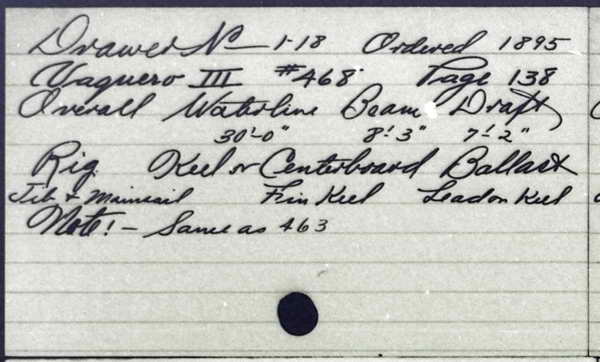 Drawer No 1-18 Ordered 1895
Vaquero III #468 Page 138
Overall Waterline Beam Draft
30'-0" 8'-3" 7'-2"
Rig Keel or Centerboard Ballast
Jib + Mainsail Fin Keel Lead on Keel
Note! - Same as 463